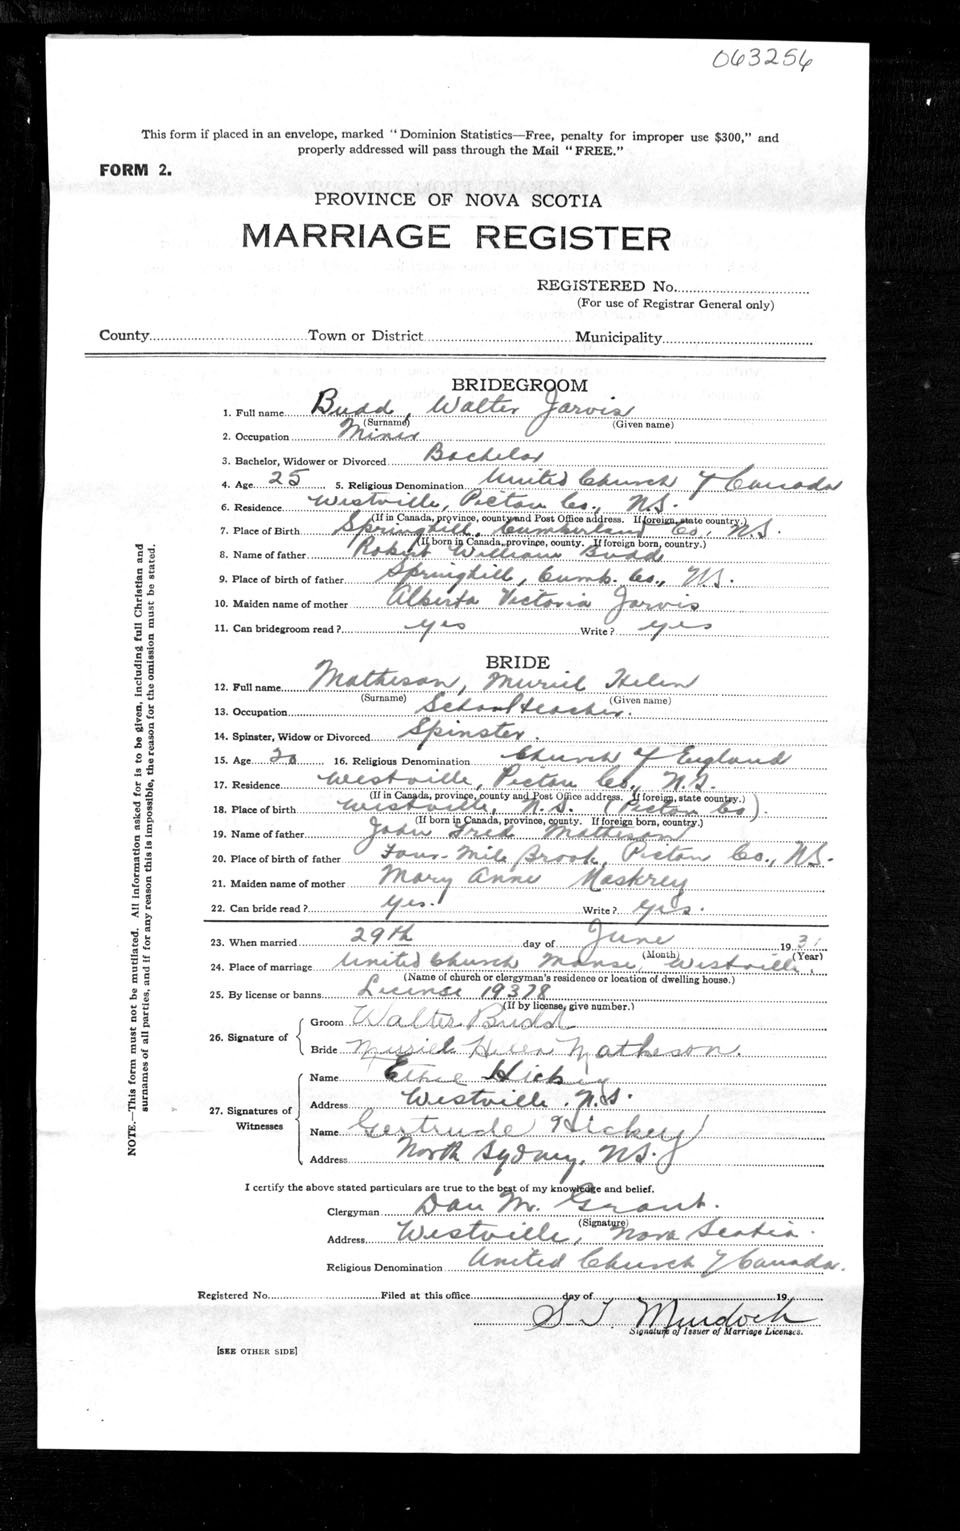 063256
This form if placed in an envelope, marked "Dominion Statistics—Free, penalty for improper use $300," and
properly addressed will pass through the Mail "FREE."
FORM 2.
PROVINCE OF NOVA SCOTIA
MARRIAGE REGISTER
REGISTERED No.
(For use of Registrar General only)
County Town or District Municipality
BRIDEGROOM
1. Full name Budd, Walter Jarvis
(Surname) (Given name)
2. Occupation Miner
3. Bachelor, Widower or Divorced Bachelor
4. Age 25 5. Religious Denomination United Church of Canada
6. Residence Westville, Pictou Co., N.S.
(If in Canada, province, county and Post Office address. If foreign, state country.)
7. Place of Birth Springhill, Cumberland Co., N.S.
(If born in Canada, province, county. If foreign born, country.)
8. Name of father Robert William Budd
9. Place of birth of father Springhill, Cumb. Co., N.S.
10. Maiden name of mother Alberta Victoria Jarvis
11. Can bridegroom read? yes Write? yes
BRIDE
12. Full name Matheson, Muriel Helen
(Surname) (Given name)
13. Occupation School teacher.
14. Spinster, Widow or Divorced Spinster.
15. Age 16. Religious Denomination Church of England
17. Residence Westville, Pictou Co., N.S.
(If in Canada, province, county and Post Office address. If foreign, state country.)
18. Place of birth Westville, N.S. (Pictou Co).
(If born in Canada, province, county. If foreign born, country.)
19. Name of father John Fred Matheson
20. Place of birth of father Four-Mile Brook, Pictou Co., N.S.
21. Maiden name of mother Mary Anne Maskrey
22. Can bride read? yes. Write? yes.
23. When married 29th day of June 1931
(Month) (Year)
24. Place of marriage United Church Manse, Westville,
(Name of church or clergyman's residence or location of dwelling house.)
25. By license or banns License 19378
(If by license, give number.)
26. Signature of
Groom Walter Budd
Bride Muriel Helen Matheson.
27. Signatures of Witnesses
Name Ethel Hickey
Address Westville, N.S.
Name Gertrude Hickey
Address North Sydney, N.S.
I certify the above stated particulars are true to the best of my knowledge and belief.
Clergyman Dan M. Grant.
(Signature)
Address Westville, Nova Scotia.
Religious Denomination United Church of Canada.
Registered No. Filed at this office day of 19
S T Murdoch
Signature of Issuer of Marriage Licenses.
[SEE OTHER SIDE]
NOTE.—This form must not be mutilated. All information asked for is to be given, including full Christian and
surnames of all parties, and if for any reason this is impossible, the reason for the omission must be stated.